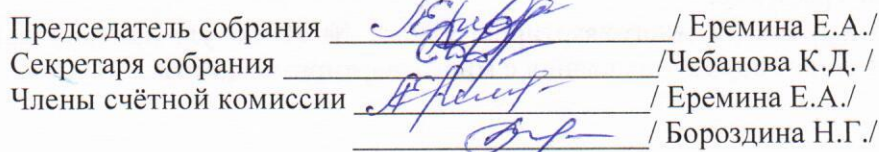 Председатель собрания ____________________/ Еремина Е.А./
Секретаря собрания ____________________/Чебанова К.Д. /
Члены счётной комиссии ____________________/ Еремина Е.А./
____________________/ Бороздина Н.Г./